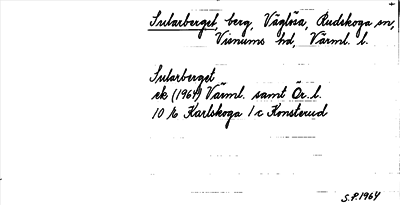 Sularberget, berg, Väglösa, Rudskoga sn,
Visnums hd, Värml. l.
Sularberget
ek (1964) Värml. samt Ör. l.
10 E Karlskoga 1 c Konsterud
S.P. 1964